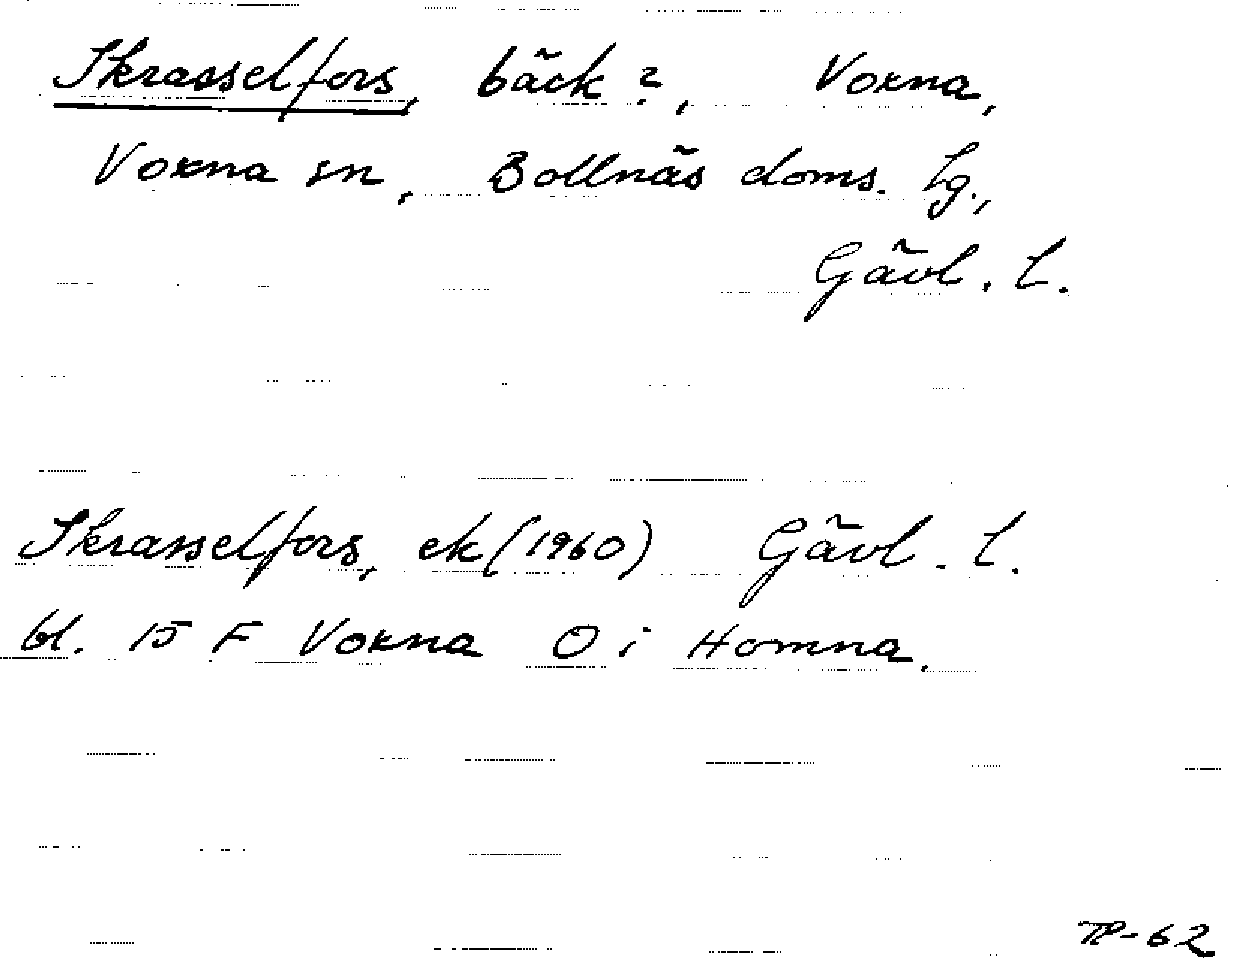 Skrasselfors, bäck?, Voxna,
Voxna sn, Bollnäs doms. lg.,
Gävl. l.
Skrasselfors, ek (1960) Gävl. l.
bl. 15 F Voxna O i Homna.
TP-62